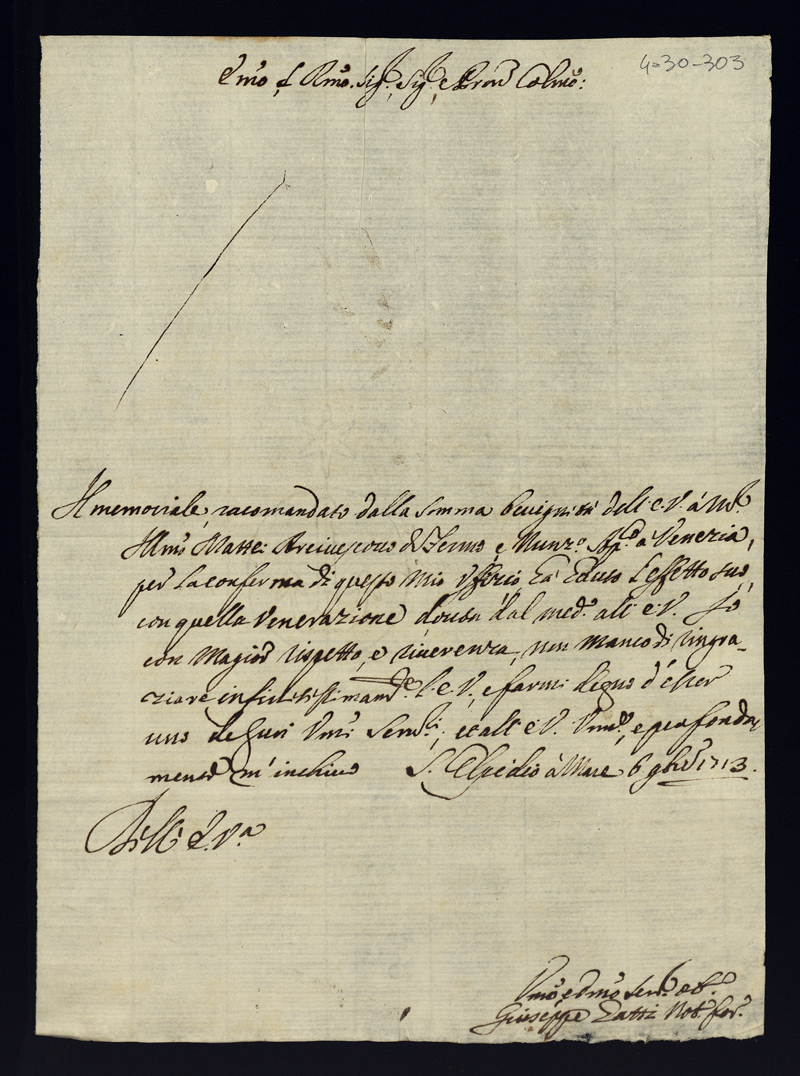 4=30-303
Emo e Rmo. Sig.r, Sig.r e Pron Colmo:
Il memoriale, racomandato dalla somma benignità dell' E. V. à M.r
Illmo Mattei Arcivescovo di Fermo e Nunz.o Ap.o à Venezia,
per la conferma di questo mio Uffizio hà hauto l'effetto suo,
con quella venerazione, douta dal med.o all' E. V. Io
con magior rispetto, e riuerenza, non manco di ringra-
ziare infinitissimam.te l' E. V., e farmi degno d'esser
uno de suoi Vmi Seru.i, et all' E. V. Vmil.e, e profonda-
mente m'inchino S. Elpidio à Mare 6 gbre 1713.
Dell' E. V.a
Vmo, e Dmo Seru. ob.o
Giuseppe Not.